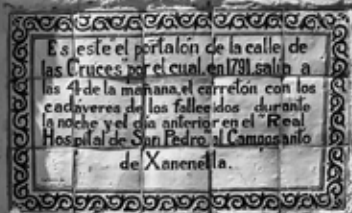 Es este el portalón de la calle de
las Cruces por el cual, en 1791, salía a
las 4 de la mañana, el carretón con los
cadaveres de los fallecidos durante
la noche y el día anterior en el "Real
Hospital de San Pedro" al Camposanto
de Xanenetla.